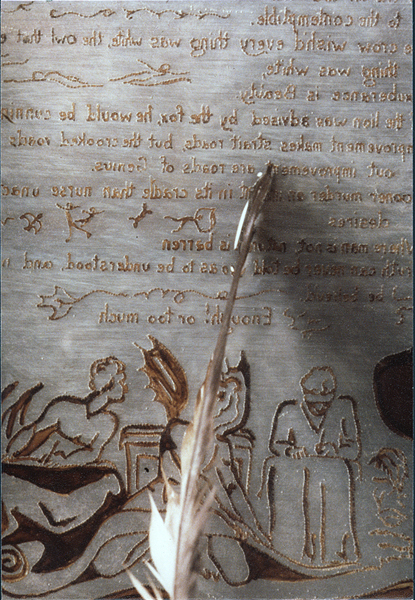 to the contemptible.
e crow wish'd every thing was black, the owl, that e
thing was white,
xuberance is Beauty.
the lion was advised by the fox, he would be cunning
mprovement makes strait roads, but the crooked roads
out improvement are roads of Genius.
ooner murder an in t in its cradle than nurse unac
desires
Where man is not nature is barren
ruth can never be told so as to be understood, and n
be believd.
Enough! or too much